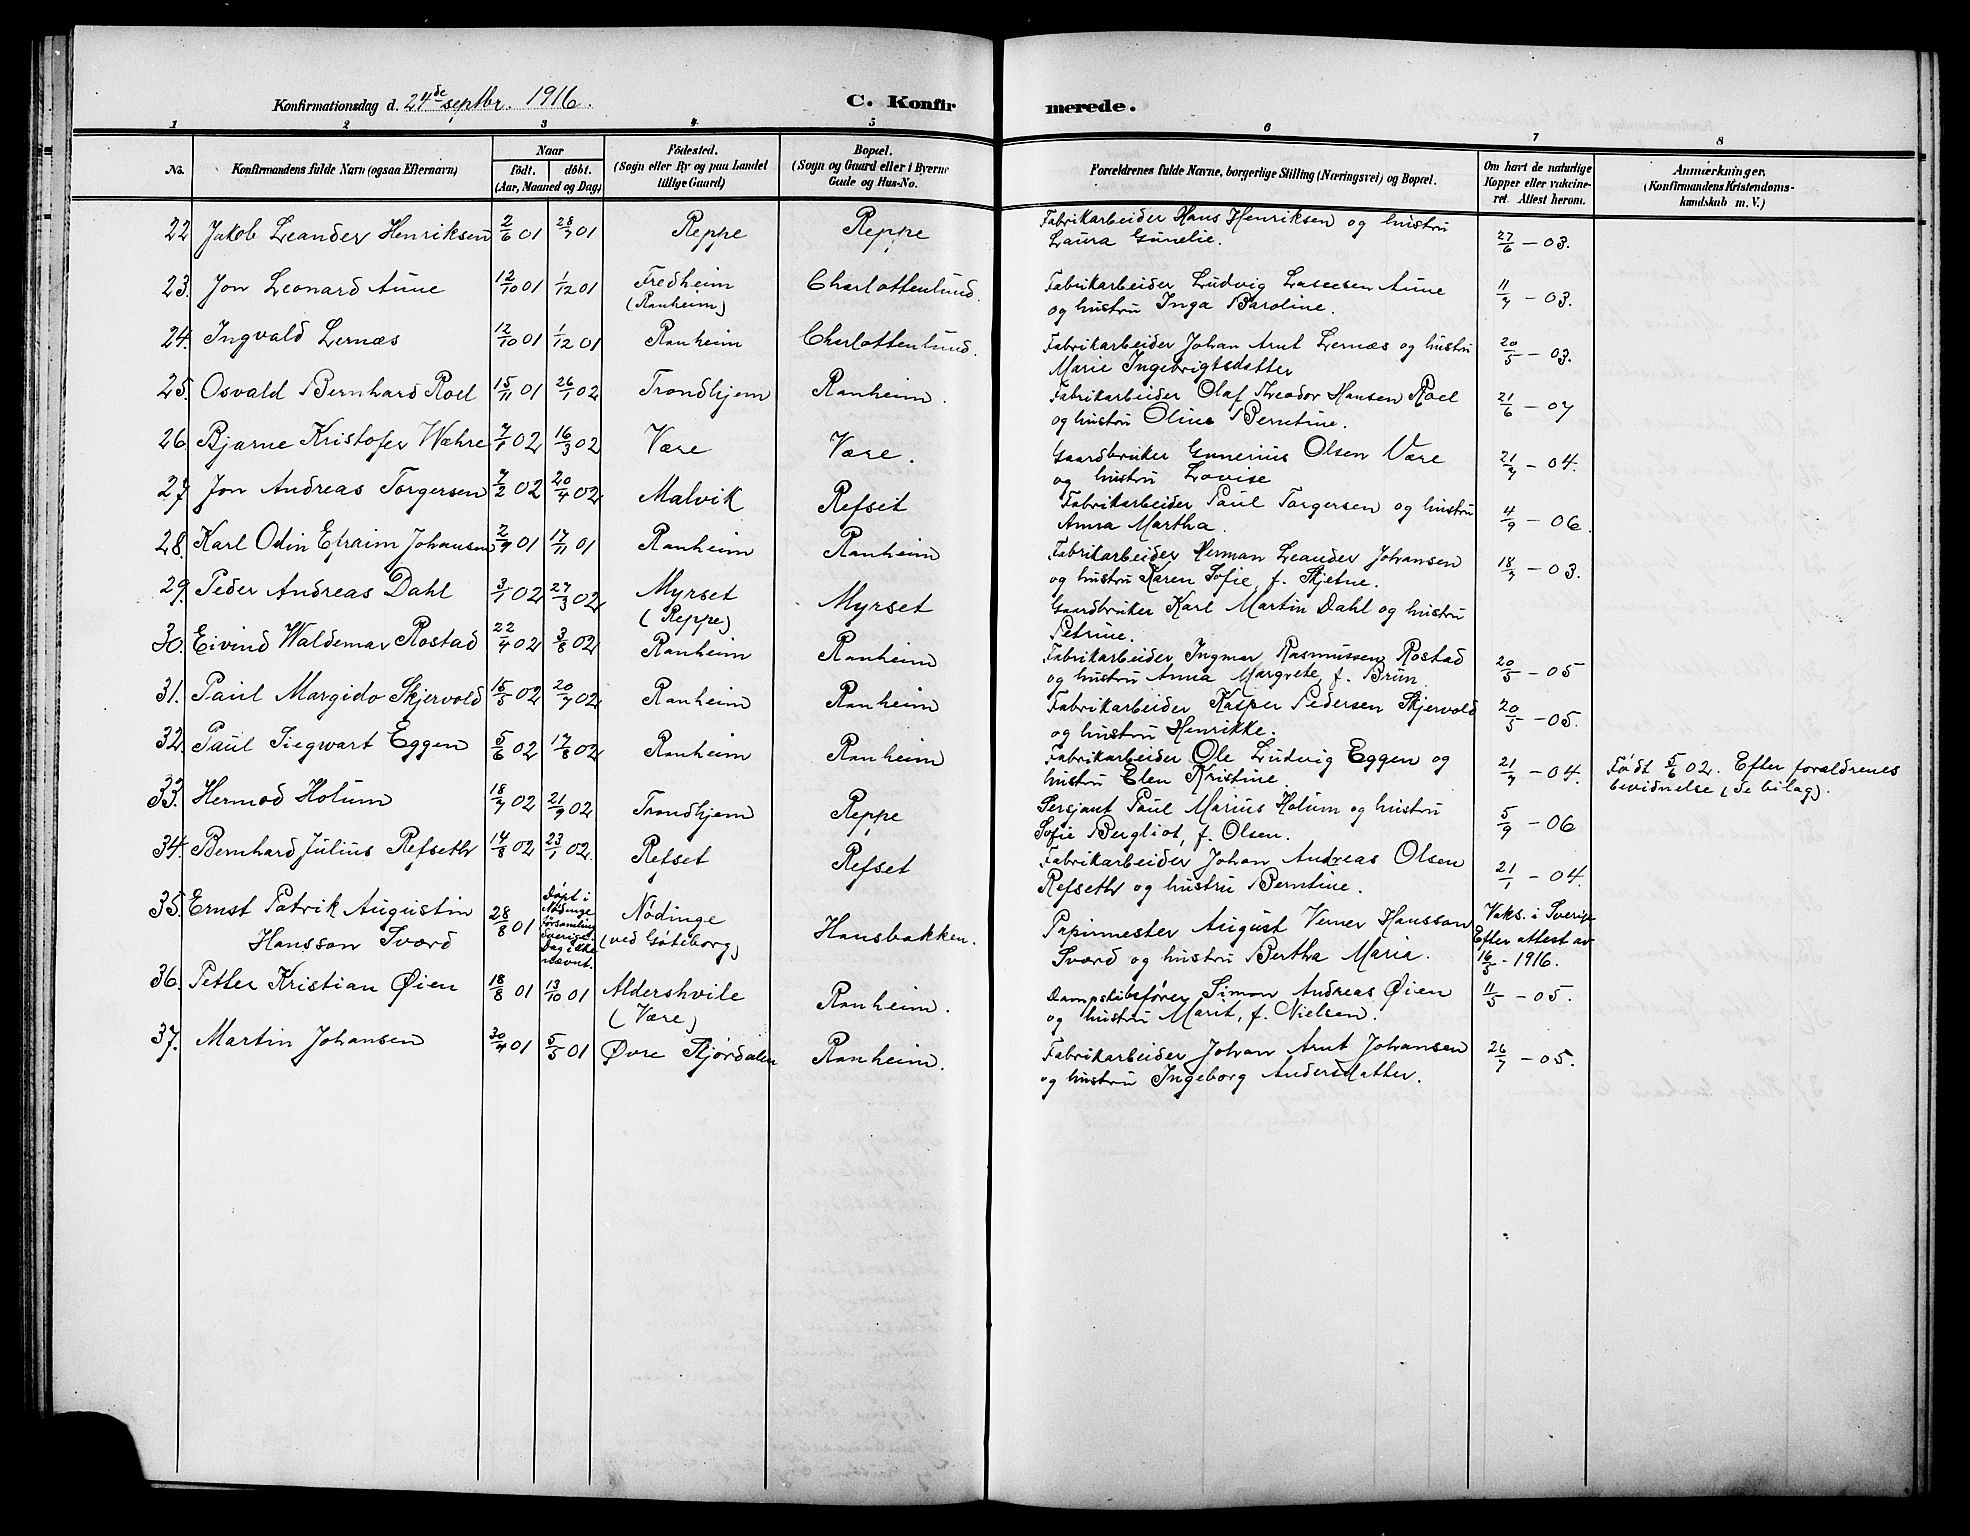 Konfirmationsdag d. 24de septbr. 1916.
C. Konfirmerede.
1 2 3 4 5 6 7 8
No. Konfirmandens fulde Navn (ogsaa Efternavn) Naar født. døbt. (Aar, Maaned og Dag) Fødested. (Sogn eller By og paa Landet tillige Gaard) Bopæl. (Sogn og Gaard eller i Byerne Gade og Hus-No. Forældrenes fulde Navne, borgerlige Stilling (Næringsvei) og Bopæl. Om havt de naturlige Kopper eller vakcineret. Attest herom. Anmærkninger. (Konfirmandens Kristendomskundskab m. V.)
22 Jakob Leander Henriksen 2/6 01 28/7 01 Reppe Reppe Fabrikarbeider Hans Henriksen og hustru
Laura Gunelie. 27/6 - 03.
23. Jon Leonard Aune 12/10 01 1/12 01 Fredheim (Ranheim) Charlottenlund. Fabrikarbeider Ludvig Aune
og hustru Inga Baroline. 11/7 - 03.
24. Ingvald Lernæs 12/10 01 1/12 01 Ranheim Charlottenlund. Fabrikarbeider Johan Arnt Lernæs og hustru
Marie Ingebrigtsdatter 20/5 - 03.
25. Osvald Bernhard Roel 15/11 01 26/1 02 Trondhjem Ranheim. Fabrikarbeider Olaf Theodor Hansen Roel
og hustru Oline Berntine. 21/6 - 07
26. Bjarne Kristofer Wæhre 7/1 02 16/3 02 Være Være. Gaardbruker Gunerius Olsen Være
og hustru Lovise 21/7 - 04.
27. Jon Andreas Torgersen 7/2 02 20/4 02 Malvik Refset Fabrikarbeider Paul Torgersen og hustru
Anna Martha. 4/9 - 06.
28. Karl Odin Efraim Johansen 2/9 01 17/11 01 Ranheim Ranheim Fabrikarbeider Herman Leander Johansen
og hustru Karen Sofie, f. Skjetne. 18/7 - 03.
29. Peder Andreas Dahl 3/1 02 27/3 02 Myrset (Reppe) Myrset Gaardbruker Karl Martin Dahl og hustru
Petrine.
30. Eivind Waldemar Rostad 22/4 02 3/8 02 Ranheim Ranheim Fabrikarbeider Ingmar Rasmussen Rostad
og hustru Anna Margrete, f. Brun 20/5 - 05
31. Paul Margido Skjervold 15/5 02 20/7 02 Ranheim Ranheim Fabrikarbeider Kasper Pedersen Skjervold
og hustru Henrikke. 20/5 - 05.
32. Paul Siegwart Eggen 5/6 02 17/8 02 Ranheim Ranheim Fabrikarbeider Ole Ludvig Eggen og
hustru Elen Kristine 21/7 - 04. Født 5/6 02. Efter forældrenes
bevidnelse (se bilag).
33. Hermod Holum 18/7 02 21/9 02 Trondhjem Reppe Sersjant Paul Marius Holum og hustru
Sofie Bergliot, f. Olsen. 5/9 - 06
34. Bernhard Julius Refseth 14/8 02 23/1 02. Refset Refset Fabrikarbeider Johan Andreas Olsen
Refseth og hustru Berntine. 21/1 - 04.
35. Ernst Patrik Augustin
Hansson Svärd 28/8 01 Døpt i Nödinge församling Sverige. Dag ikke nævnt. Nödinge (ved Göteborg) Hansbakken. Papirmester August Verner Hansson
Svärd og hustru Bertha Maria. Vaks. i Sverige
Efter attest av
16/5 - 1916.
36. Petter Kristian Øien 18/8 01 13/10 01 Aldershvile (Være) Ranheim. Dampskibsfører Simon Andreas Øien
og hustru Marit, f. Nielsen. 11/5 - 05.
37. Martin Johansen 30/4 01 5/5 01 Øvre Stjørdalen Ranheim. Fabrikarbeider Johan Arnt Johansen
og hustru Ingeborg Andersdatter. 26/7 - 05.